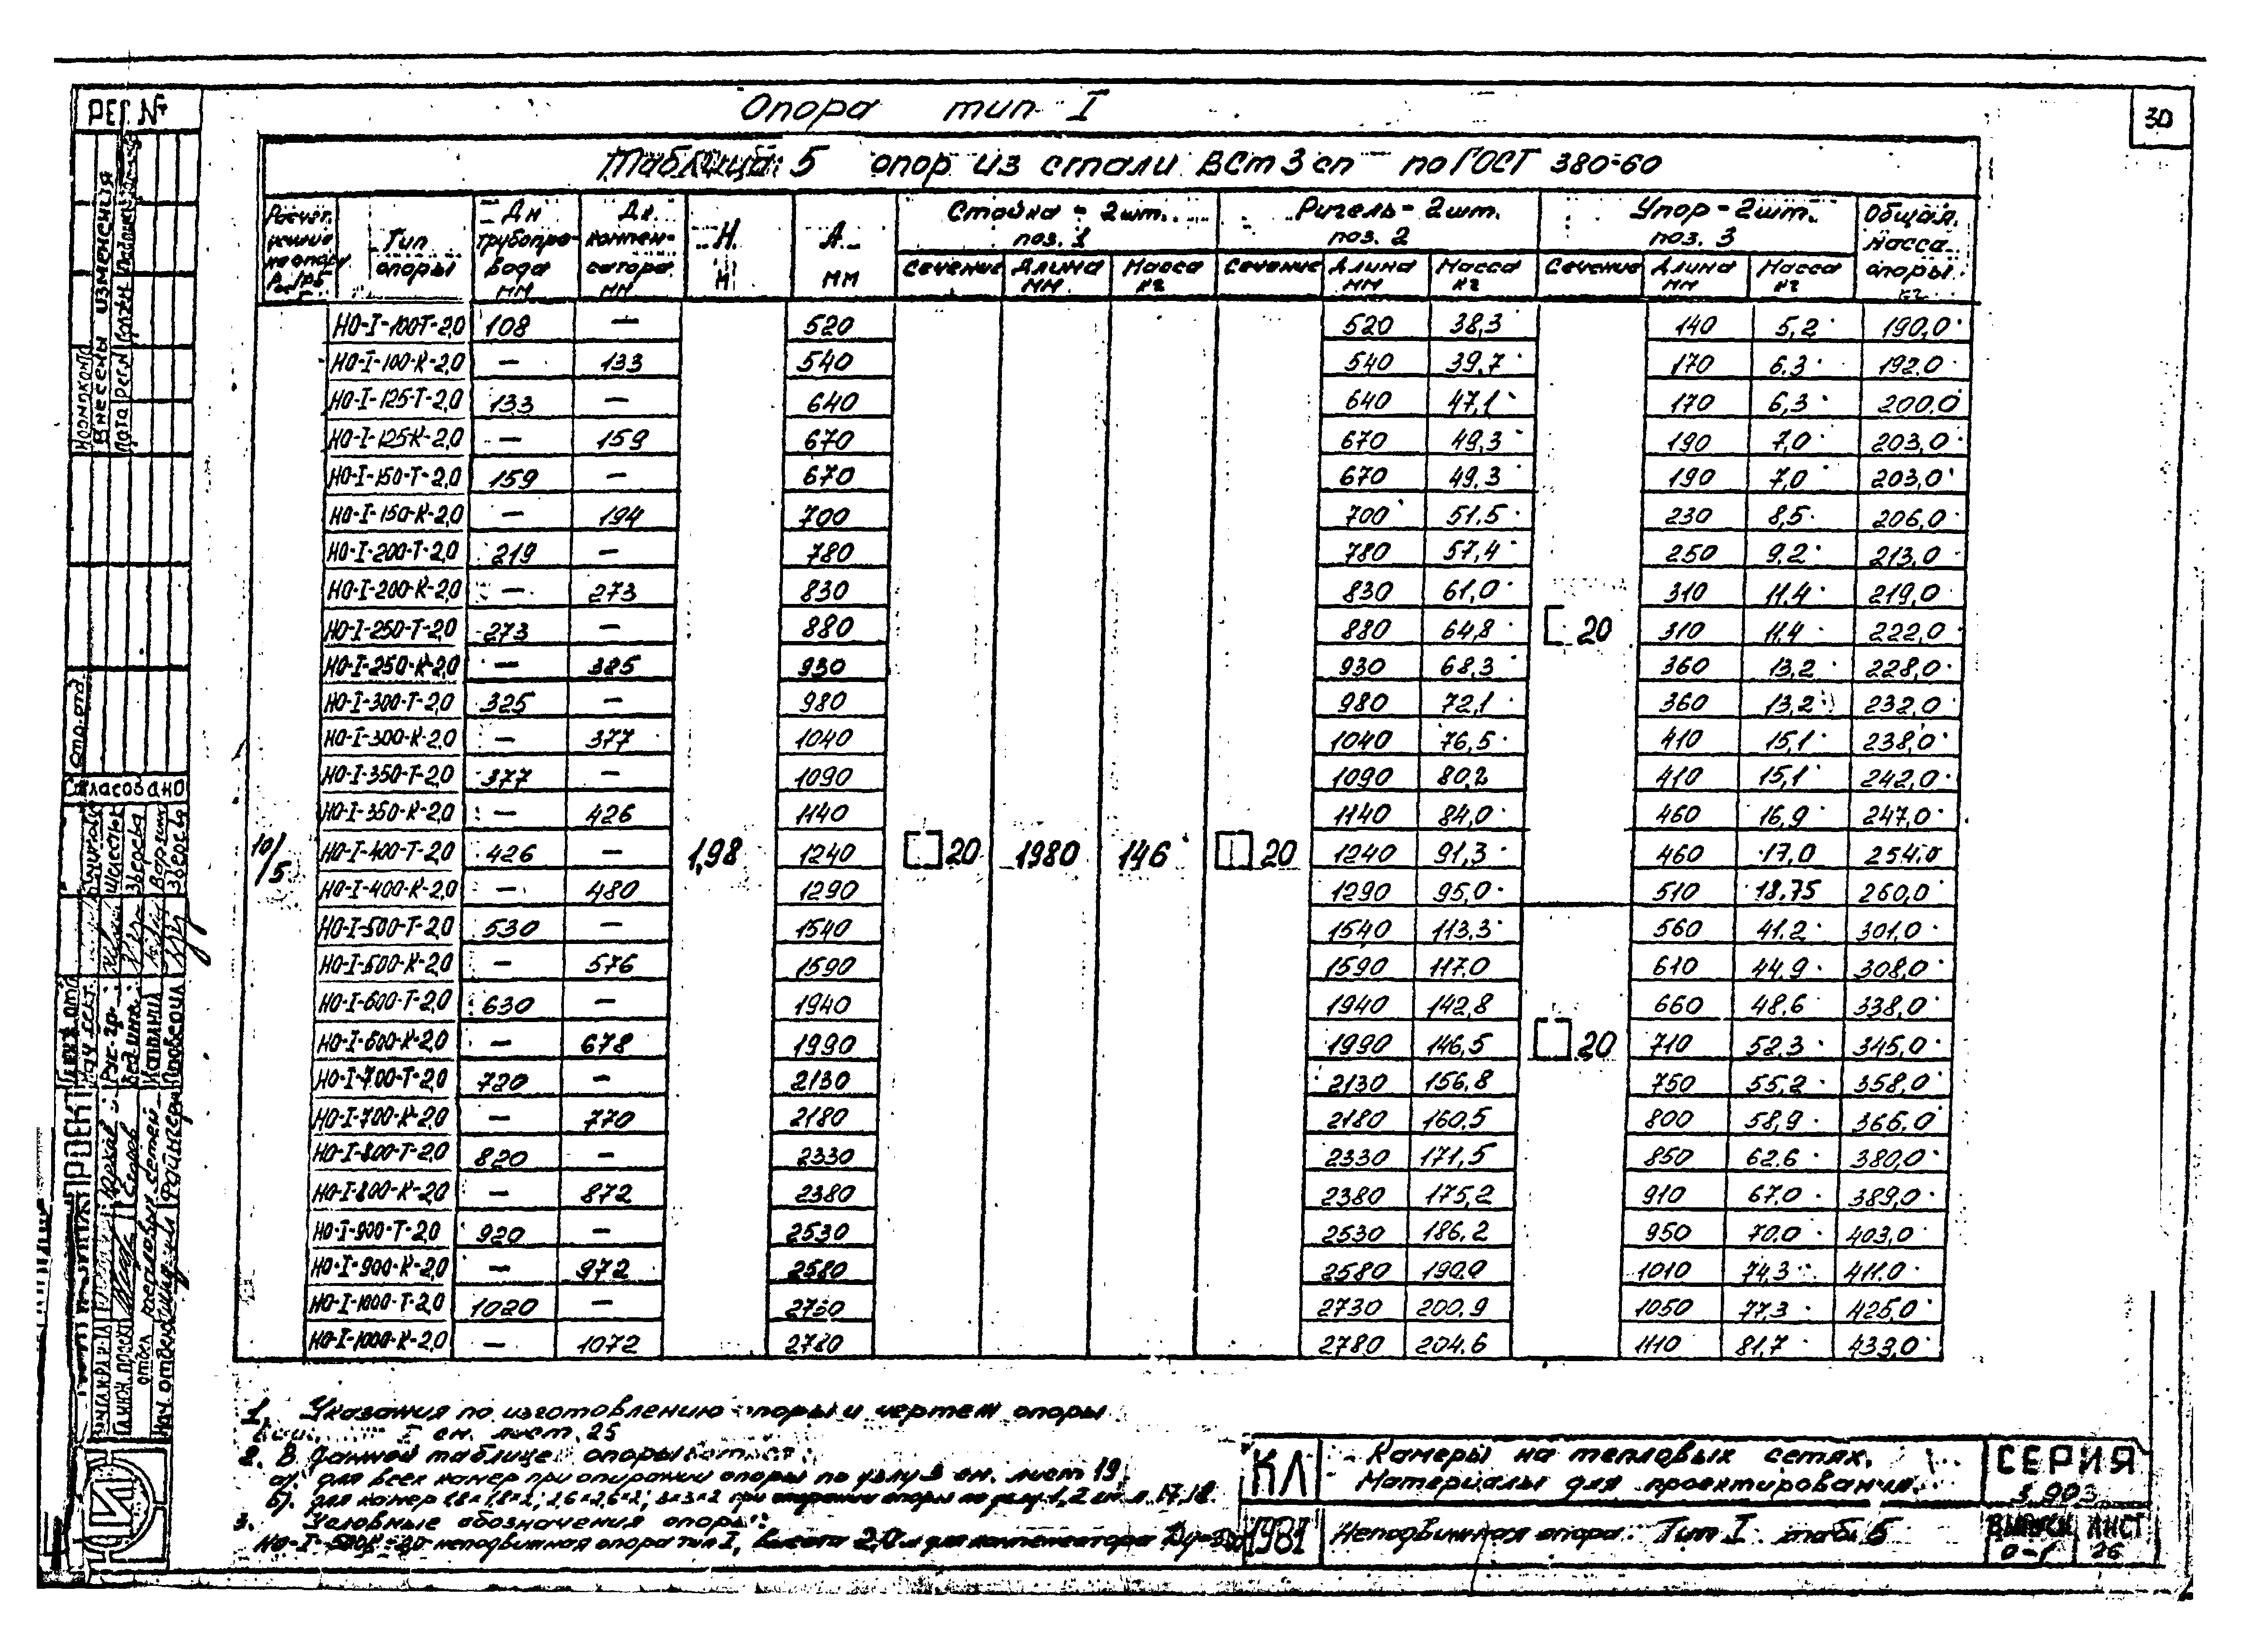 РЕГ. №
30
Опора тип I
Таблица 5 опор из стали ВСт3сп по ГОСТ 380-60
Тип опоры
Дн трубопровода мм
Дк компенсатора мм
Н м
А мм
Стойка - 2шт. поз. 1
Ригель - 2шт. поз. 2
Упор - 2шт. поз. 3
Общая масса опоры кг
Сечение Длина мм Масса кг Сечение Длина мм Масса кг Сечение Длина мм Масса кг
НО-I-100Т-2,0 108 — 520 520 38,3 140 5,2 190,0
НО-I-100-К-2,0 — 133 540 540 39,7 170 6,3 192,0
НО-I-125-Т-2,0 133 — 640 640 47,1 170 6,3 200,0
НО-I-125К-2,0 — 159 670 670 49,3 190 7,0 203,0
НО-I-150-Т-2,0 159 — 670 670 49,3 190 7,0 203,0
НО-I-150-К-2,0 — 194 700 700 51,5 230 8,5 206,0
НО-I-200-Т-2,0 219 — 780 780 57,4 250 9,2 213,0
НО-I-200-К-2,0 — 273 830 830 61,0 310 11,4 219,0
НО-I-250-Т-2,0 273 — 880 880 64,8 20 310 11,4 222,0
НО-I-250-К-2,0 — 325 930 930 68,3 360 13,2 228,0
НО-I-300-Т-2,0 325 — 980 980 72,1 360 13,2 232,0
НО-I-300-К-2,0 — 377 1040 1040 76,5 410 15,1 238,0
НО-I-350-Т-2,0 377 — 1090 1090 80,2 410 15,1 242,0
НО-I-350-К-2,0 — 426 1140 1140 84,0 460 16,9 247,0
10/5 НО-I-400-Т-2,0 426 — 1,98 1240 20 1980 146 20 1240 91,3 460 17,0 254,0
НО-I-400-К-2,0 — 480 1290 1290 95,0 510 18.75 260,0
НО-I-500-Т-2,0 530 — 1540 1540 113,3 560 41.2 301,0
НО-I-500-К-2,0 — 576 1590 1590 117,0 610 44,9 308,0
НО-I-600-Т-2,0 630 — 1940 1940 142,8 660 48,6 338,0
НО-I-600-К-2,0 — 678 1990 1990 146,5 20 710 52,3 345,0
НО-I-700-Т-2,0 720 — 2130 2130 156,8 750 55,2 358,0
НО-I-700-К-2,0 — 770 2180 2180 160,5 800 58,9 366,0
НО-I-800-Т-2,0 820 — 2330 2330 171,5 850 62,6 380,0
НО-I-800-К-2,0 — 872 2380 2380 175,2 910 67,0 389,0
НО-I-900-Т-2,0 920 — 2530 2530 186,2 950 70,0 403,0
НО-I-900-К-2,0 — 972 2580 2580 190,0 1010 74,3 411,0
НО-I-1000-Т-2,0 1020 — 2730 2730 200,9 1050 77,3 425,0
НО-I-1000-К-2,0 — 1072 2780 2780 204,6 1110 81,7 433,0
1. Указания по изготовлению опоры и чертеж опоры
I см. лист. 25
2. В данной таблице опоры
а). для всех камер при опирании опоры по узлу 3 см. лист 19.
б). для камер 1,8×1,8×2; 2,6×2,6×2; 3×3×2 при опирании опоры по узлу 1,2 см. л. 17,18.
3. Условные обозначения опоры:
неподвижная опора тип I, высота 2,0 м для компенсатора
КЛ
1981
Камеры на тепловых сетях.
Материалы для проектирования.
Неподвижная опора. Тип I. табл. 5
СЕРИЯ
3.903
ВЫПУСК ЛИСТ
0-1 26
Внесены изменения
Согласовано